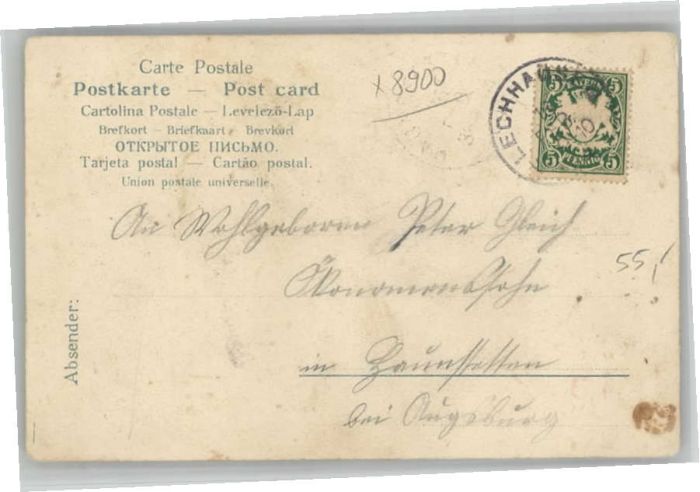 Carte Postale
Postkarte — Post card
Cartolina Postale — Levelező-Lap
Brefkort — Briefkaart — Brevkort
ОТКРЫТОЕ ПИСЬМО.
Tarjeta postal — Cartão postal.
Union postale universelle.
x 8900
LECHHAUSEN
5 5
PFENNIG
5 5
An Wohlgeboren Peter Gleich
Ökonomenssohn
55,-
in Haunstetten
bei Augsburg
Absender: